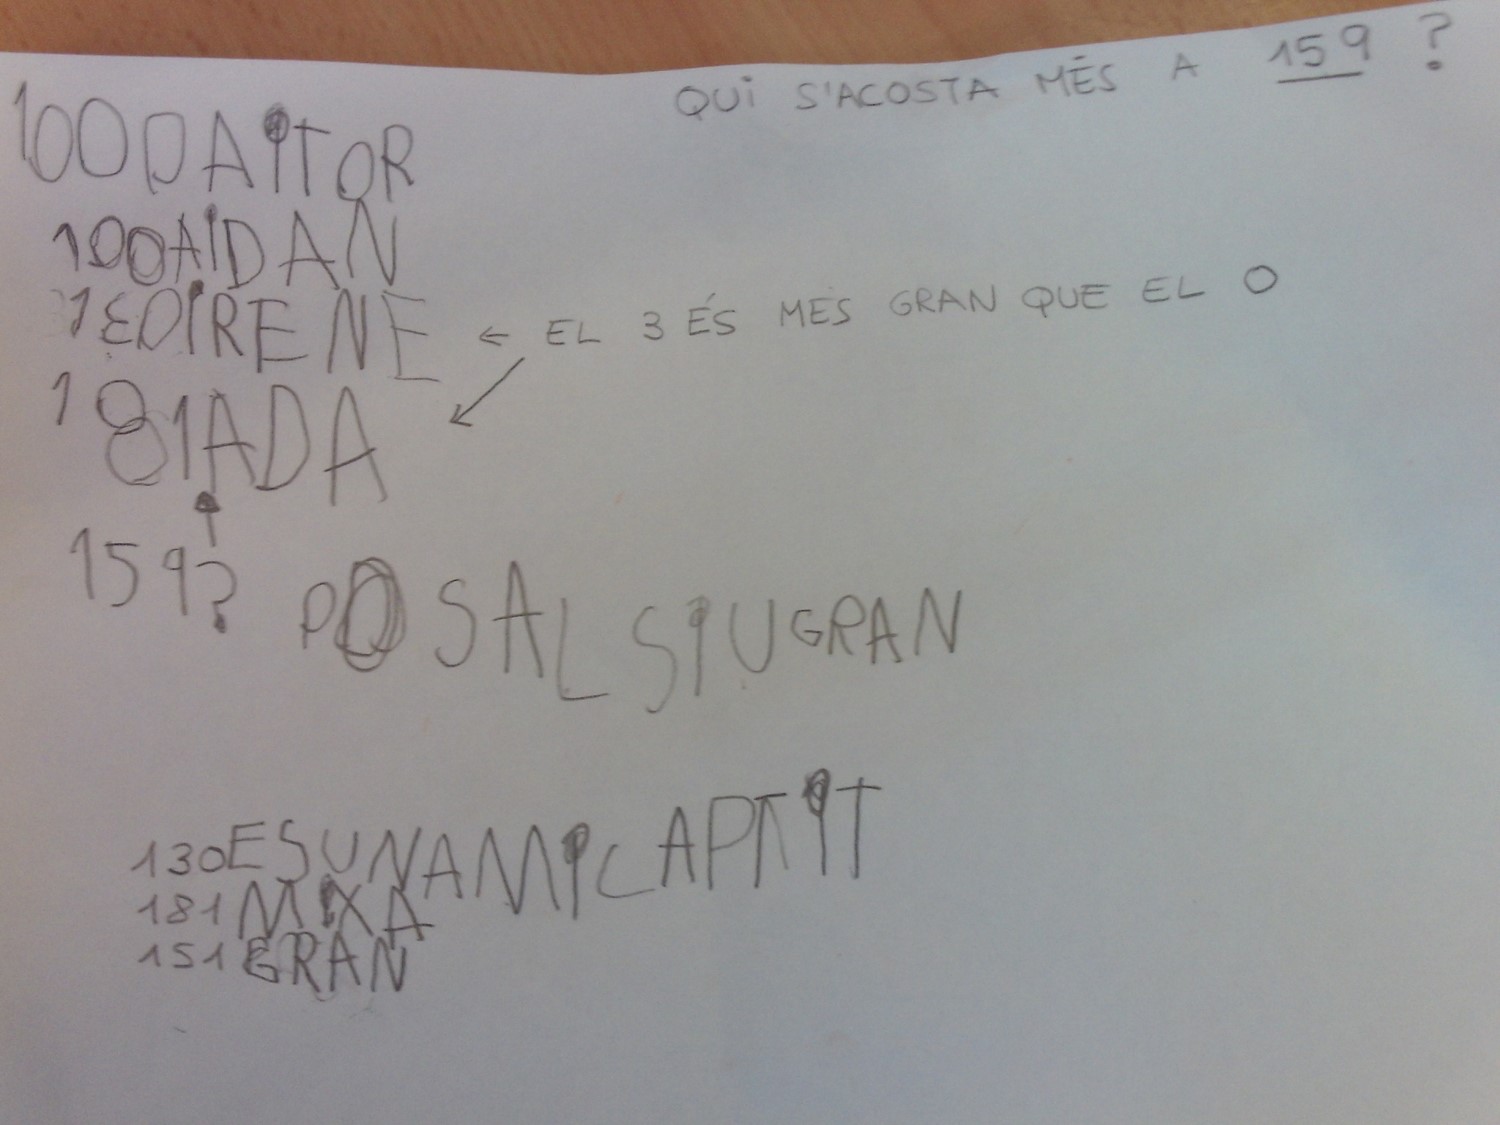 QUI S'ACOSTA MÉS A 159 ?
100 D AITOR
100 AIDAN
130 IRENE ← EL 3 ÉS MÉS GRAN QUE EL 0
181 ADA
159? POSALSIUGRAN
130 ESUNAMICAPTIT
181 MIXA
151 GRAN